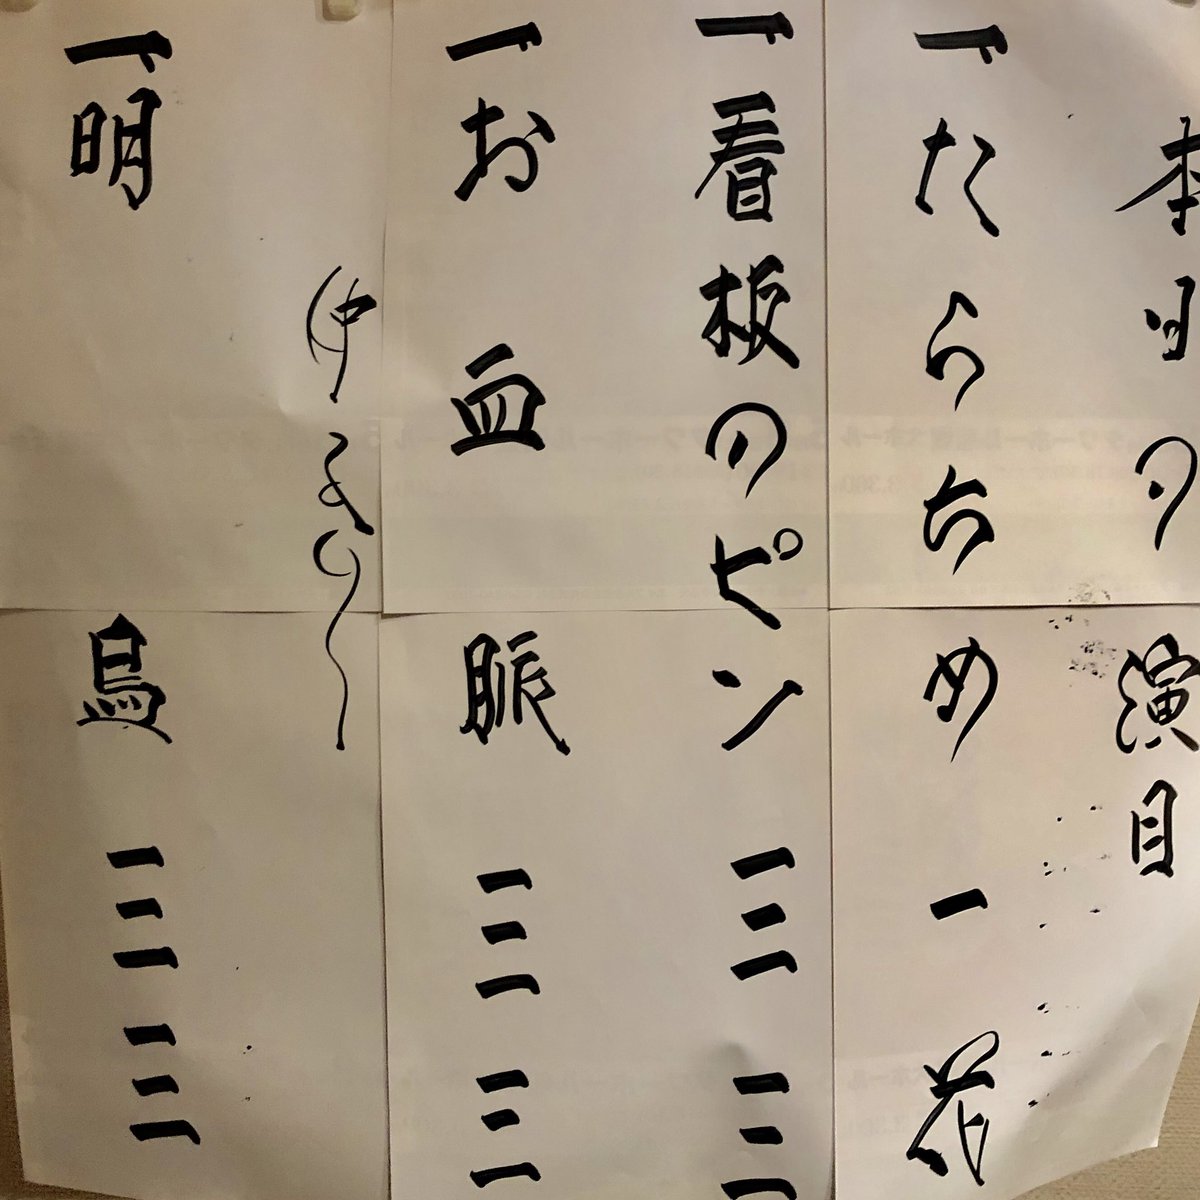 本日の演目
一、たらちめ 一花
一、看板のピン 三三
一、お血脈 三三
仲入り
一、明烏 三三